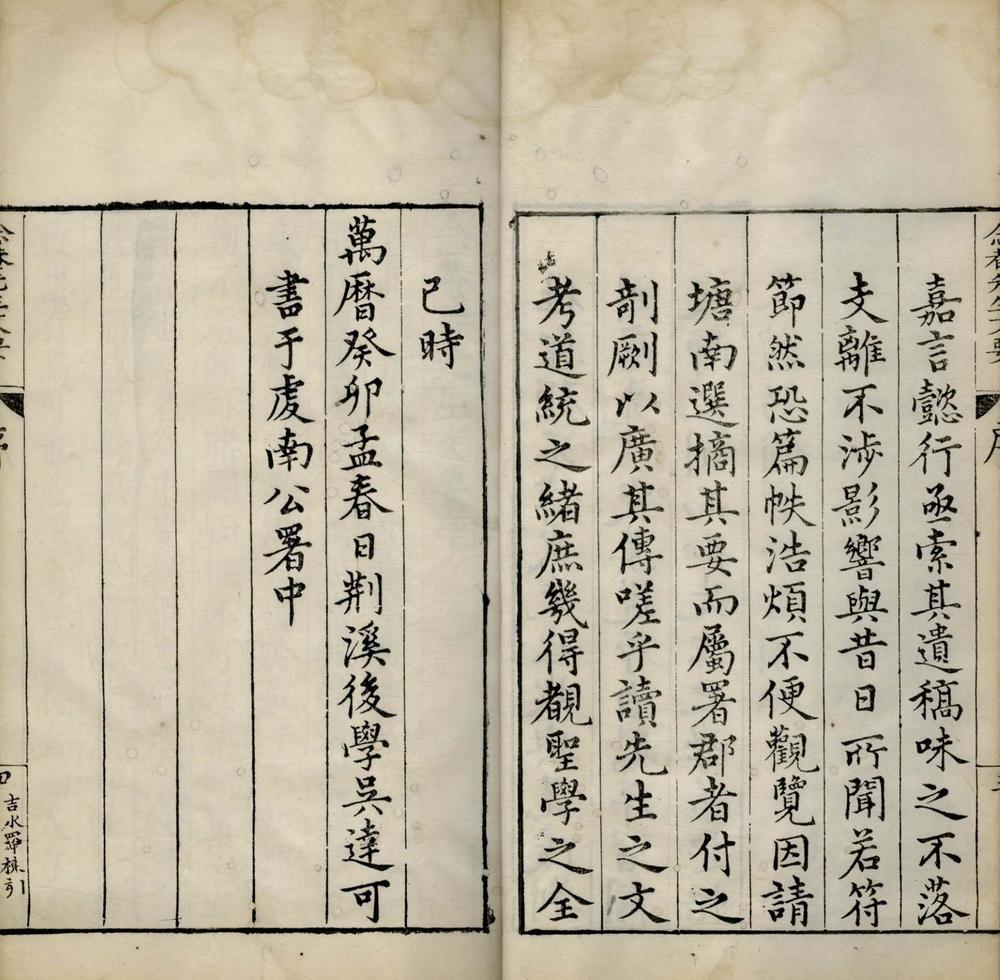 嘉言懿行亟索其遺稿味之不落
支離不涉影響與昔日所聞若符
節然恐篇帙浩煩不便觀覽因請
塘南選摘其要而屬署郡者付之
剞劂以廣其傳嗟乎讀先生之文
考道統之緒庶幾得覩聖學之全
已時
萬曆癸卯孟春日荆溪後學吳達可
書于虔南公署中
吉水羅